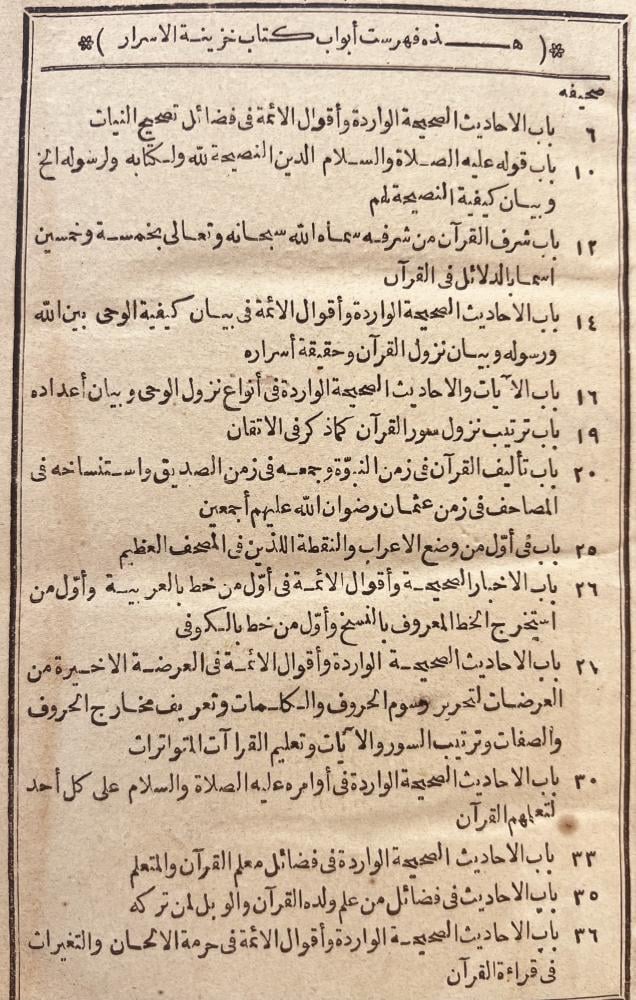 ❊( هـــذه فهرست أبواب كتاب خزينة الاسرار )❊
صحيفه
٦ باب الاحاديث الصحيحة الواردة وأقوال الائمة فى فضائل تصحيح النيات
١٠ باب قوله عليه الصلاة والسلام الدين النصيحة لله ولكتابه ولرسوله الخ
وبيان كيفية النصيحة لهم
١٢ باب شرف القرآن من شرفه سماه الله سبحانه وتعالى بخمسة وخمسين
اسما بالدلائل فى القرآن
١٤ باب الاحاديث الصحيحة الواردة وأقوال الائمة فى بيان كيفية الوحى بين الله
ورسوله وبيان نزول القرآن وحقيقة أسراره
١٦ باب الآيات والاحاديث الصحيحة الواردة فى أنواع نزول الوحى وبيان أعداده
١٩ باب ترتيب نزول سور القرآن كما ذكر فى الاتقان
٢٠ باب تأليف القرآن فى زمن النبوّة وجمعه فى زمن الصديق واستنساخه فى
المصاحف فى زمن عثمان رضوان الله عليهم أجمعين
٢٥ باب فى أوّل من وضع الاعراب والنقطة اللذين فى المصحف العظيم
٢٦ باب الاخبار الصحيحة وأقوال الائمة فى أوّل من خط بالعربية وأوّل من
استخرج الخط المعروف بالنسخ وأوّل من خط بالكوفى
٢٨ باب الاحاديث الصحيحة الواردة وأقوال الائمة فى العرضة الاخيرة من
العرضات لتحرير رسوم الحروف والكلمات وتعريف مخارج الحروف
والصفات وترتيب السور والآيات وتعليم القراآت المتواترات
٣٠ باب الاحاديث الصحيحة الواردة فى أوامره عليه الصلاة والسلام على كل أحد
لتعلهم القرآن
٣٣ باب الاحاديث الصحيحة الواردة فى فضائل معلم القرآن والمتعلم
٣٥ باب الاحاديث فى فضائل من علم ولده القرآن والويل لمن تركه
٣٦ باب الاحاديث الصحيحة الواردة وأقوال الائمة فى حرمة الالحان والتغيرات
فى قراءة القرآن